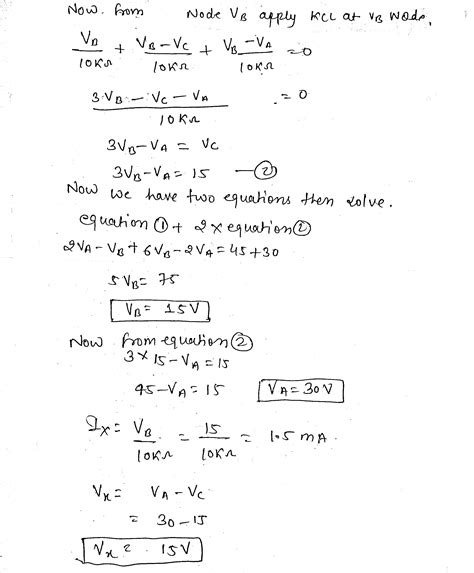 Now. from Node VB apply KCL at VB Node.
VB/10KΩ + VB-VC/10KΩ + VB-VA/10KΩ = 0
3VB - VC - VA/10KΩ = 0
3VB-VA = VC
3VB-VA = 15 —②
Now we have two equations then solve.
equation ① + 2 x equation ②
2VA - VB + 6VB - 2VA = 45+30
5VB = 75
VB = 15V
Now from equation ②
3 x 15 - VA = 15
45-VA = 15 VA = 30V
Ix = VB/10KΩ = 15/10KΩ = 1.5 mA.
Vx = VA - VC
= 30-15
Vx = 15V